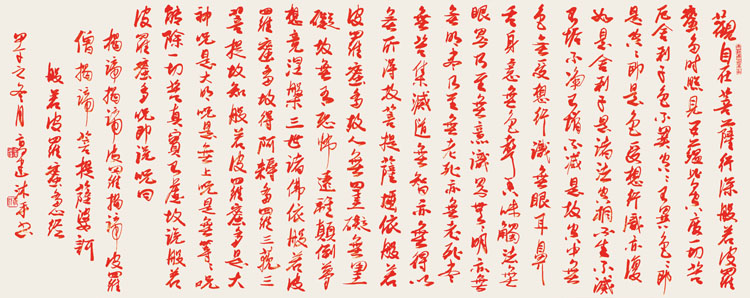 觀自在菩薩行深般若波羅
蜜多時照見五蘊皆空度一切苦
厄舍利子色不異空空不異色色即
是空空即是色受想行識亦復
如是舍利子是諸法空相不生不滅
不垢不淨不增不減是故空中無
色無受想行識無眼耳鼻
舌身意無色聲香味觸法無
眼界乃至無意識界無無明亦無
無明盡乃至無老死亦無老死盡
無苦集滅道無智亦無得以
無所得故菩提薩埵依般若
波羅蜜多故心無罣礙無罣
礙故無有恐怖遠離顛倒夢
想竟涅槃三世諸佛依般若波
羅蜜多故得阿耨多羅三藐三
菩提故知般若波羅蜜多是大
神咒是大明咒是無上咒是無等等咒
能除一切苦真實不虛故說般若
波羅蜜多咒即說咒曰
揭諦揭諦波羅揭諦波羅
僧揭諦菩提薩婆訶
般若波羅蜜多心經
甲午之冬月高建沐手書